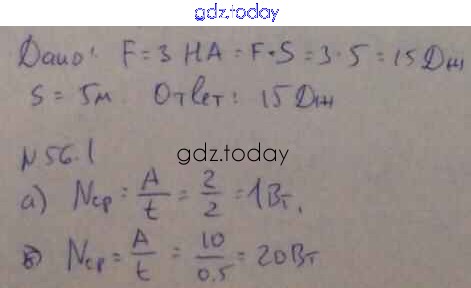 gdz.today
Дано: F = 3 НА = F•S = 3•5 = 15 Дж
S = 5м. Ответ: 15 Дж
N 56.1
gdz.today
а) Nср = A/t = 2/2 = 1Вт.
в) Nср = A/t = 10/0.5 = 20Вт
gdz.today